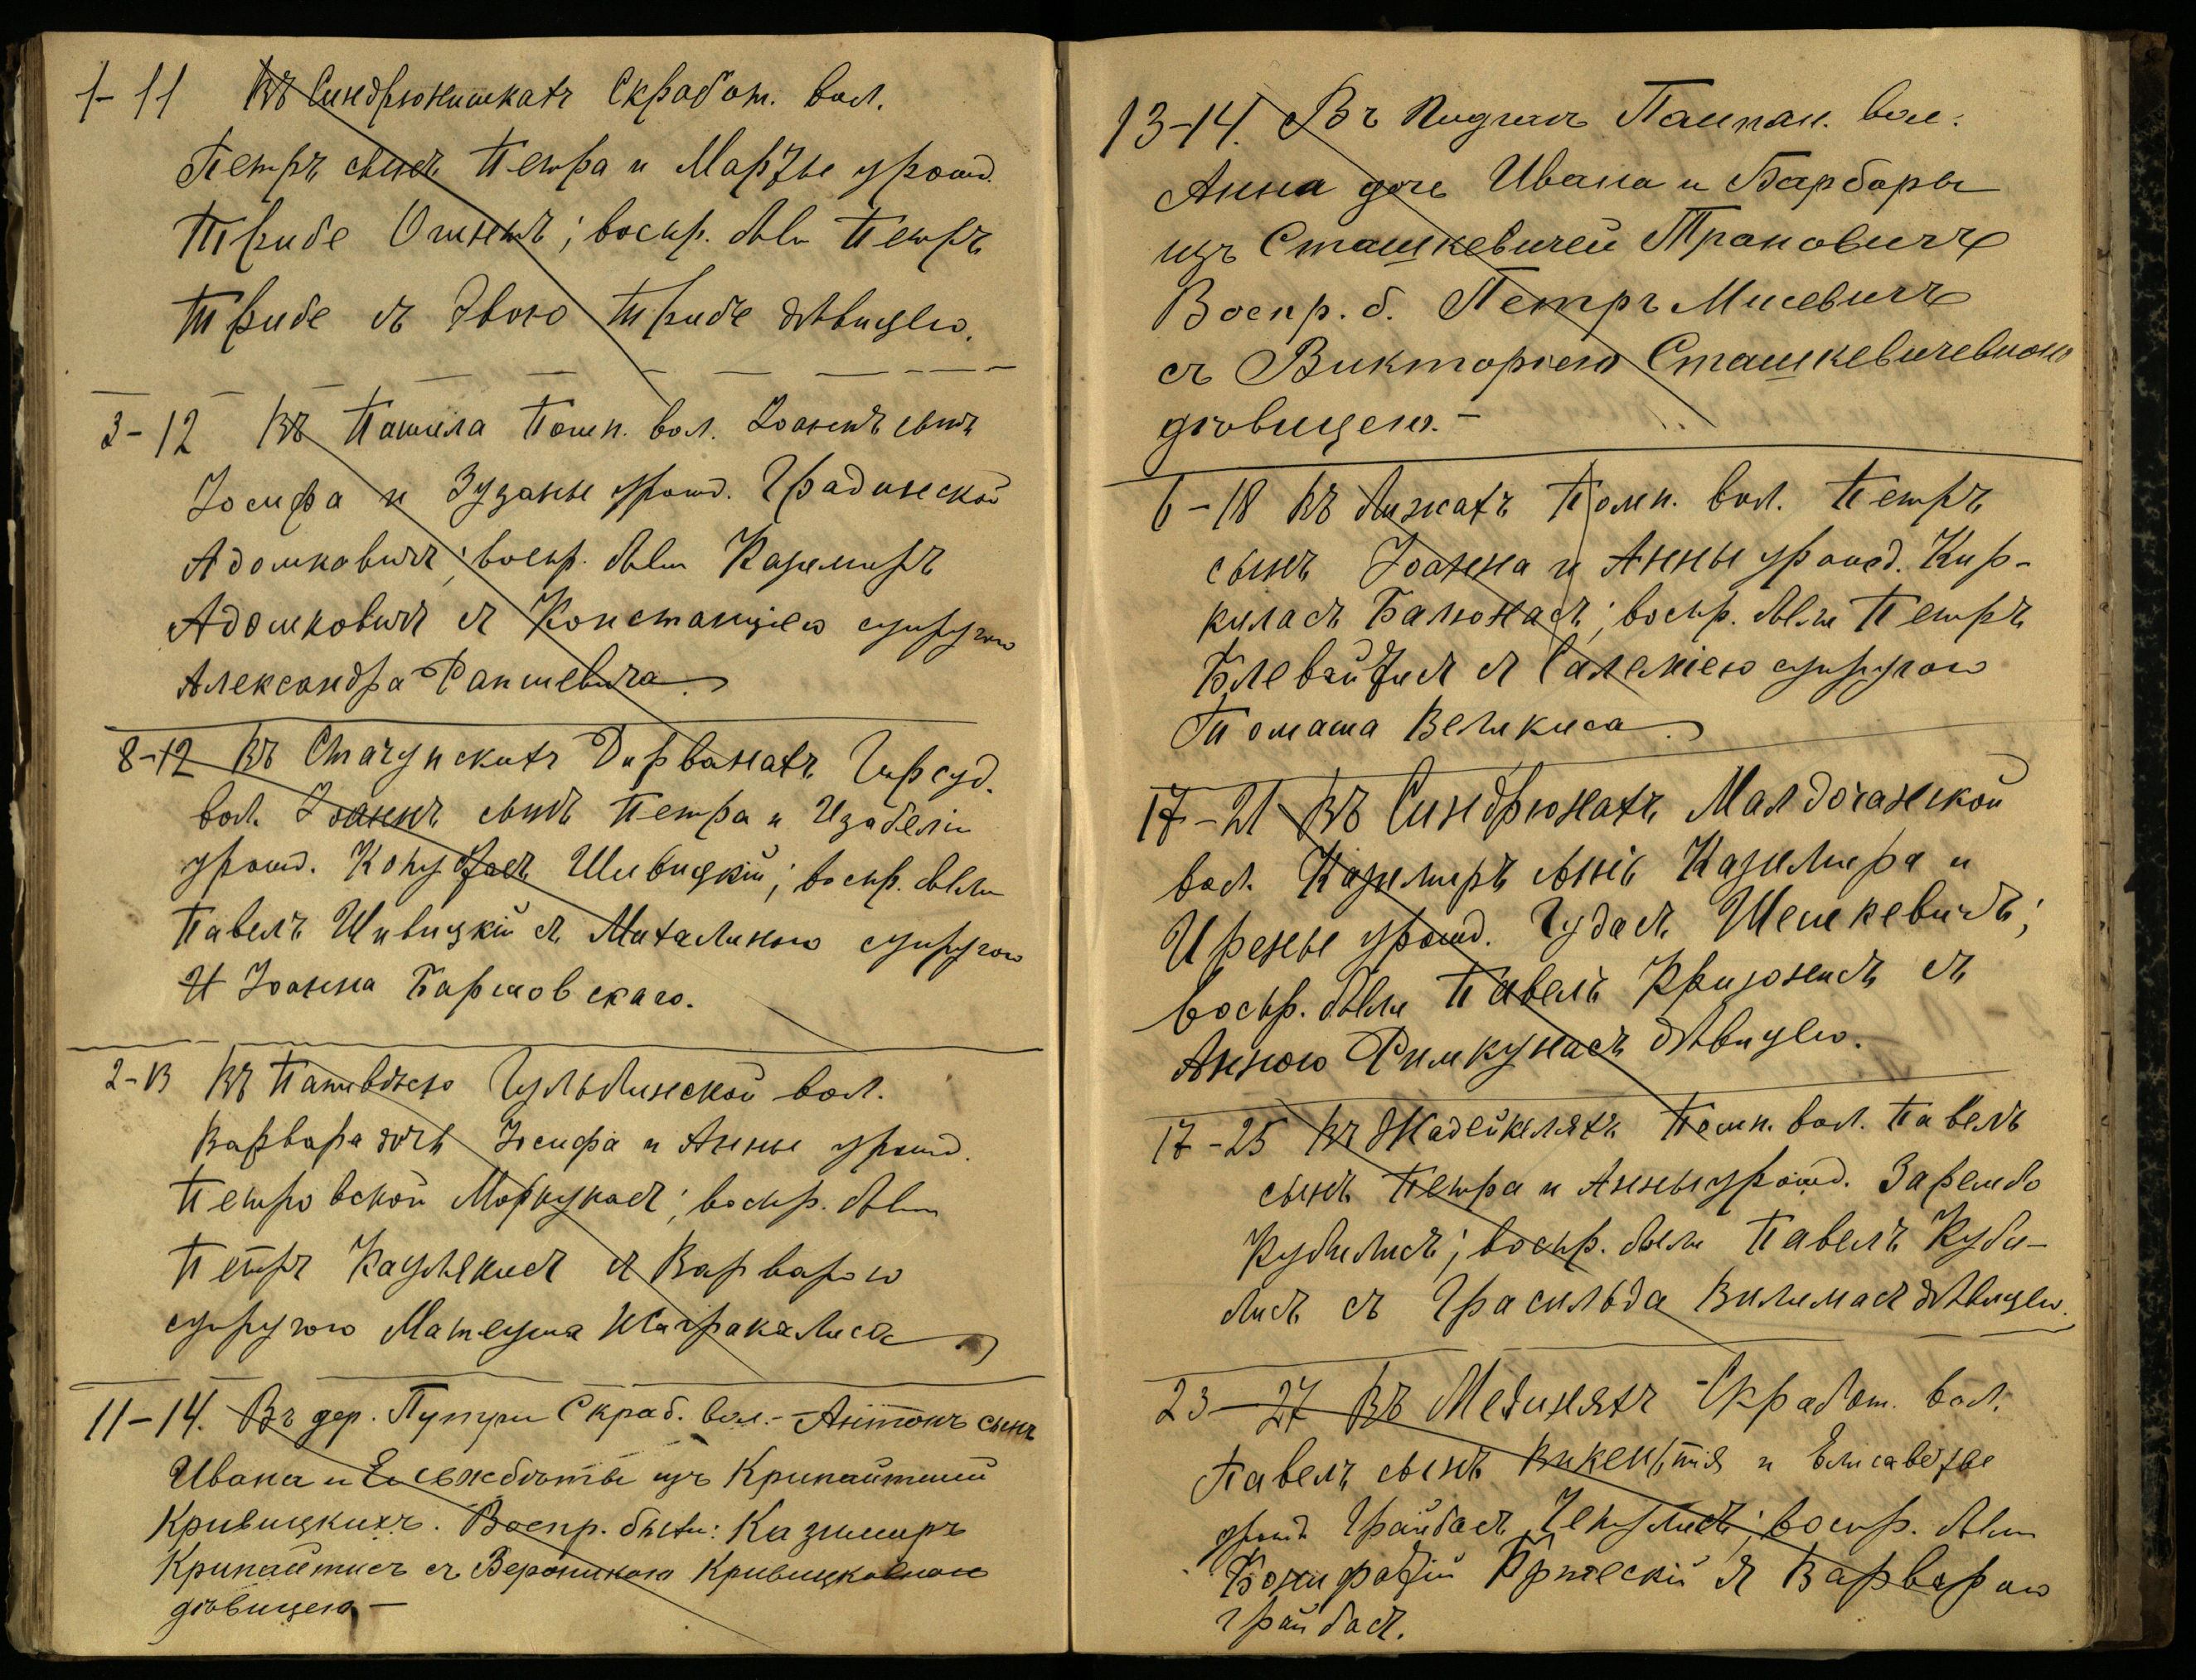 1-11 Въ Синдрюнишкахъ Скработ. вол.
Петръ сынъ Петра и Марѳы урожд.
Грибе Ошнетъ; воспр. были Петръ
Грибе съ Евою Грибе дѣвицею.
3-12 Въ Пашила Помп. вол. Іоаннъ сынъ
Іосифа и Зузаны урожд. Градинской
Адомковичъ; воспр. были Казимиръ
Адомковичъ съ Констанціею супругою
Александра Рапшевича.
8-12 Въ Стачунскихъ Дирванахъ Гирсуд.
вол. Іоаннъ сынъ Петра и Изабеліи
урожд. Шивицкій; воспр. были
Павелъ Шивицкій съ Михалиною супругою
Іоанна Баршовскаго.
2-13 Въ Гульбинской вол.
Варвара дочь Іосифа и Анны урожд.
Петровской Моркунасъ; воспр. были
Петръ Каулякисъ съ Варварою
супругою Матеуша
11-14. Въ дер. Путри Скраб. вол. - Антонъ сынъ
Ивана и Ельжбѣты изъ Крипайтшей
Кривицкихъ. Воспр. были: Казимиръ
Крипайтисъ съ Вероникою Кривицковною
дѣвицею. -
13-14. Въ Пашпан. вол.
Анна дочь Ивана и Барборы
изъ Сташкевичей Трановичъ
Воспр. б. Петръ Мисевичъ
съ Викторіею Сташкевичевною
дѣвицею. -
6-18 Въ Лижахъ Помп. вол. Петръ
сынъ Іоанна и Анны урожд. Кир-
киласъ Балюнасъ; воспр. были Петръ
Блевайтисъ съ Саломіею супругою
Томаша Великиса.
17-21 Въ Синдрюнахъ Малдочанской
вол. Казимиръ сынъ Казимира и
Ирены урожд. Гудасъ Шешкевичъ;
воспр. были Павелъ Кризонисъ съ
Анною Римкунасъ дѣвицею.
17-25 Въ Жадейкеляхъ Помп. вол. Павелъ
сынъ Петра и Анны урожд. Зарембо
Кубилисъ; воспр. были Павелъ Куби-
лисъ съ Грасильда Вилимасъ дѣвицею.
23-27 Въ Медин­яхъ Скработ. вол.
Павелъ сынъ Викентія и Елисаветы
урожд. Грайбасъ воспр. были
Бонифатій съ Варварою
Грайбасъ.